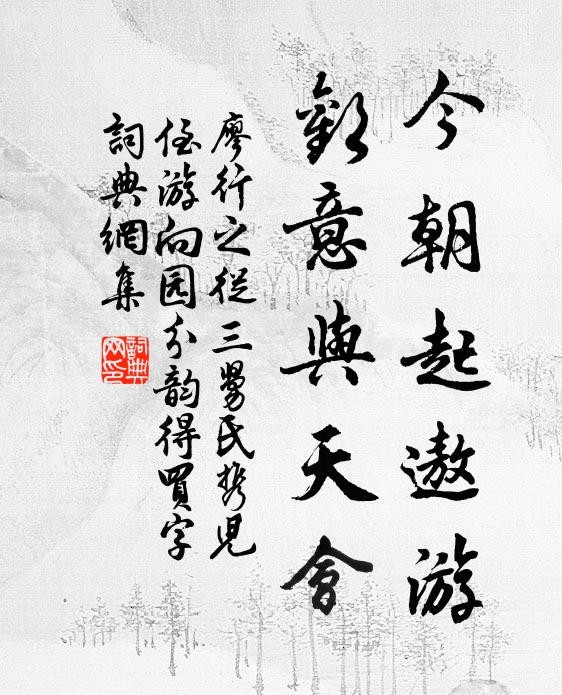 今朝起遨游
歡意與天會
廖行之從三舅氏携兒
侄游向园分韵得買字
詞典網集
詞典
网印